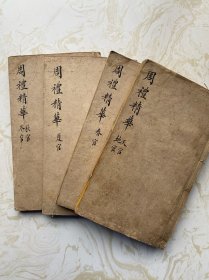 周禮精華
天官
地官
周禮精華
春官
周禮精華
夏官
周禮精華
秋官
冬官